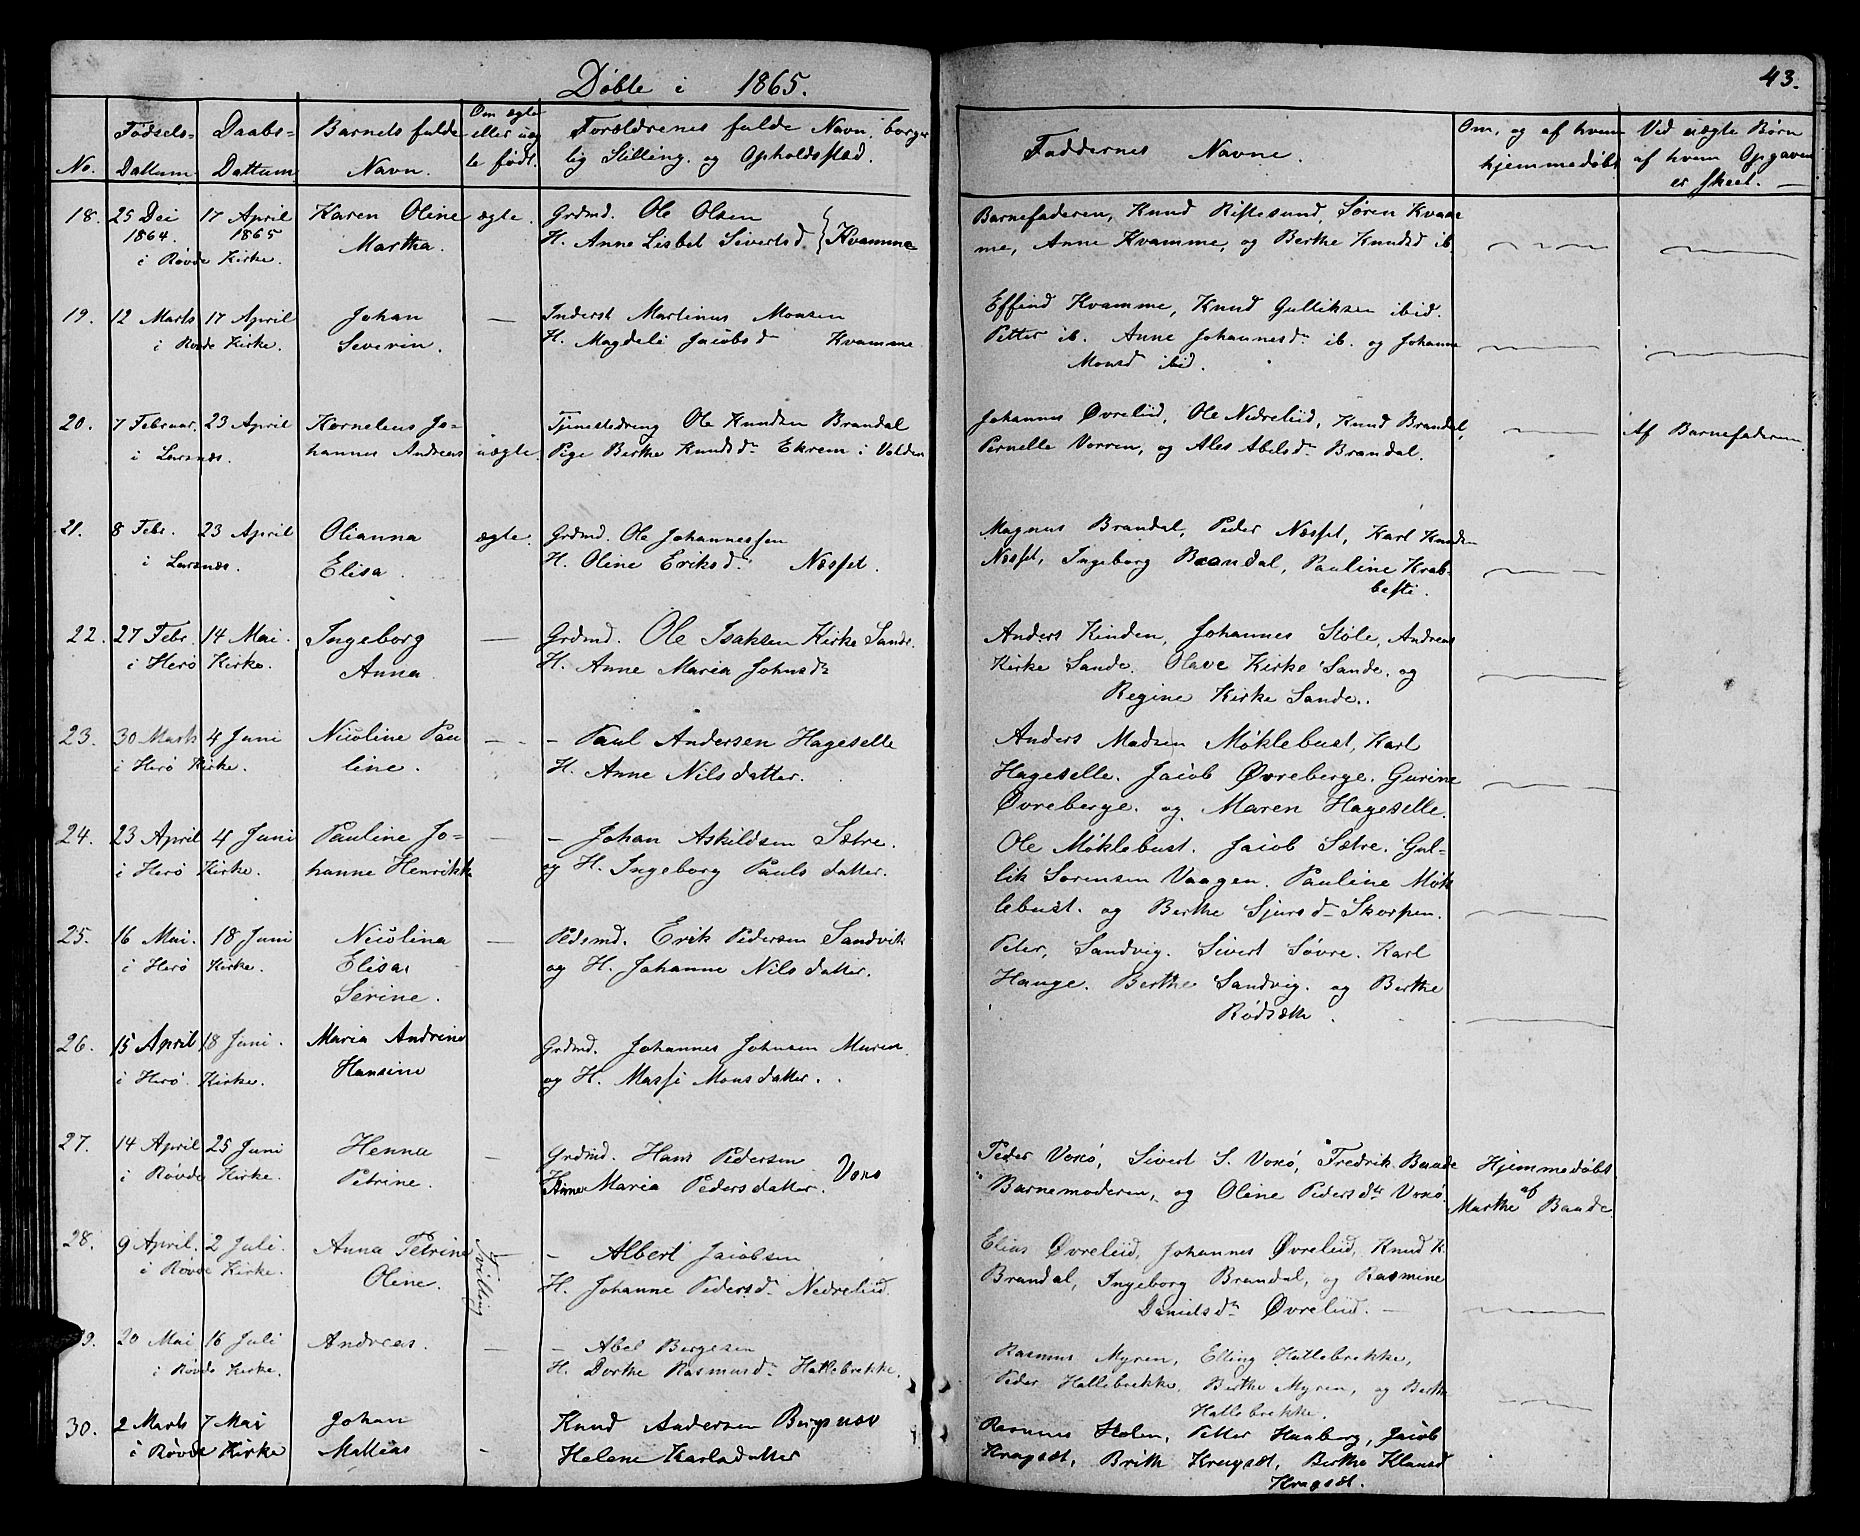 Døbte i 1865.
43.
No. | Fødsels-Dattum | Daabs-Dattum | Barnets fulde Navn. | Om ægte eller uægte født. | Forældrenes fulde Navn, borgerlig Stilling, og Opholdssted. | Faddernes Navne. | Om, og af hvem hjemmedøbt | Ved uægte Børn af hvem Opgaven er skeet.
18. 25 Dei 17 April Karen Oline ægte. Grdmd. Ole Olsen Barnefaderen, Knud Riftesund, Søren Kvam
1864. 1865 Martha. H. Anne Lisbet Sivertsd. } Kvamme me, Anne Kvamme, og Berthe Knudsd ib
i Røvde Kirke.
19. 12 Marts 17 April Johan — Inderst Martinus Monsen Effend Kvamme, Knud Gulliksen ibid.
i Røvde Kirke. Severin. H. Magdeli Jacobsd Kvamme Petter ib. Anne Johannesd. ib. og Johanne
Monsd ibid.
20. 7 Februar. 23 April Kornelius Jo- Tjenestedreng Ole Knudsen Brandal Johannes Øvreliid, Ole Nedreliid, Knud Brandal, Af Barnefaderen
i Larsnæs. hannes Andreas uægte. Pige Berthe Knudsd. Ekrem i Volden Pernelle Vorren, og Ales Abelsd. Brandal.
21. 8 Febr. 23 April Olianna ægte. Grdmd. Ole Johannessen Magnus Brandal, Peder Næsset, Karl Knudsen
i Larsnæs. Elisa. H. Oline Eriksd. Næsset. Næsset, Ingeborg Brandal, Pauline Krab-
besti.
22. 27 Febr. 14 Mai. Ingeborg — Grdmd. Ole Isaksen Kirke Sande. Anders Kinden, Johannes Støle, Andreas
i Herø Kirke. Anna H. Anne Maria Johnsd. Kirke Sande. Olave Kirke Sande. og
Regine Kirke Sande.
23. 30 Marts 4 Juni Nicoline Pau — - Paul Andersen Hageselle Anders Madsen Møklebust, Karl
i Herø Kirke. line. H. Anne Nilsdatter. Hageselle. Jacob Øvreberge. Gurine
Øvreberge. og Maren Hageselle.
24. 23 April 4 Juni Pauline Jo- — - Johan Askildsen Sætre. Ole Møklebust. Jacob Sætre. Gul-
i Herø Kirke. hanne Henrikke og H. Ingeborg Paulsdatter. lik Sørensen Vaagen. Pauline Møk
lebust. og Berthe Sjursd Skorpen.
25. 16 Mai. 18 Juni Nicolina — Pldsmd. Erik Pedersen Sandvik Peter, Sandvig. Sivert Søvre. Karl
i Herø Kirke. Elisa. og H. Johanne Nilsdatter. Hauge. Berthe Sandvig. og Berthe
Serine. Rødsæth.
26. 15 April 18 Juni. Maria Andrine Grdmd. Johannes Johnsen Muren
i Herø. Kirke. Hansine og H. Massi Monsdatter.
27. 14 April 25 Juni Henna — Grdmd. Hans Pedersen Voxø Peder Voxø, Sivert S. Voxø, Fredrik Baade Hjemmedøbt
i Røvde Kirke. Petrine. H. Anne Maria Pedersdatter. Barnemoderen, og Oline Pedersdtr Voxø. af Marthe Baade
28. 9 April. 2 Juli. Anna Petrine Tvilling - Albert Jacobsen Elias Øvreliid, Johannes Øvreliid, Knud K.
i Røvde Kirke. Oline. H. Johanne Pedersd. Nedreliid. Brandal, Ingeborg Brandal, og Rasmine
Danielsd. Øvreliid. —
29. 20 Mai 16 Juli Andreas. — - Abel Bergesen Rasmus Myren, Elling Hallebrekke,
i Røvde Kirke. H. Dorthe Rasmusd. Hallebrekke. Peder Hallebrekke, Berthe Myren, og Berthe
Hallebrekke.
30. 2 Marts 7 Mai Johan - Knud Andersen Bergsnæv Rasmus Holen, Petter Haaberg, Jacob
i Røvde Kirke Mattias Helene Karlsdatter Kragsæt, Brith Kragsæt, Berthe Klausd
Kragsæt.